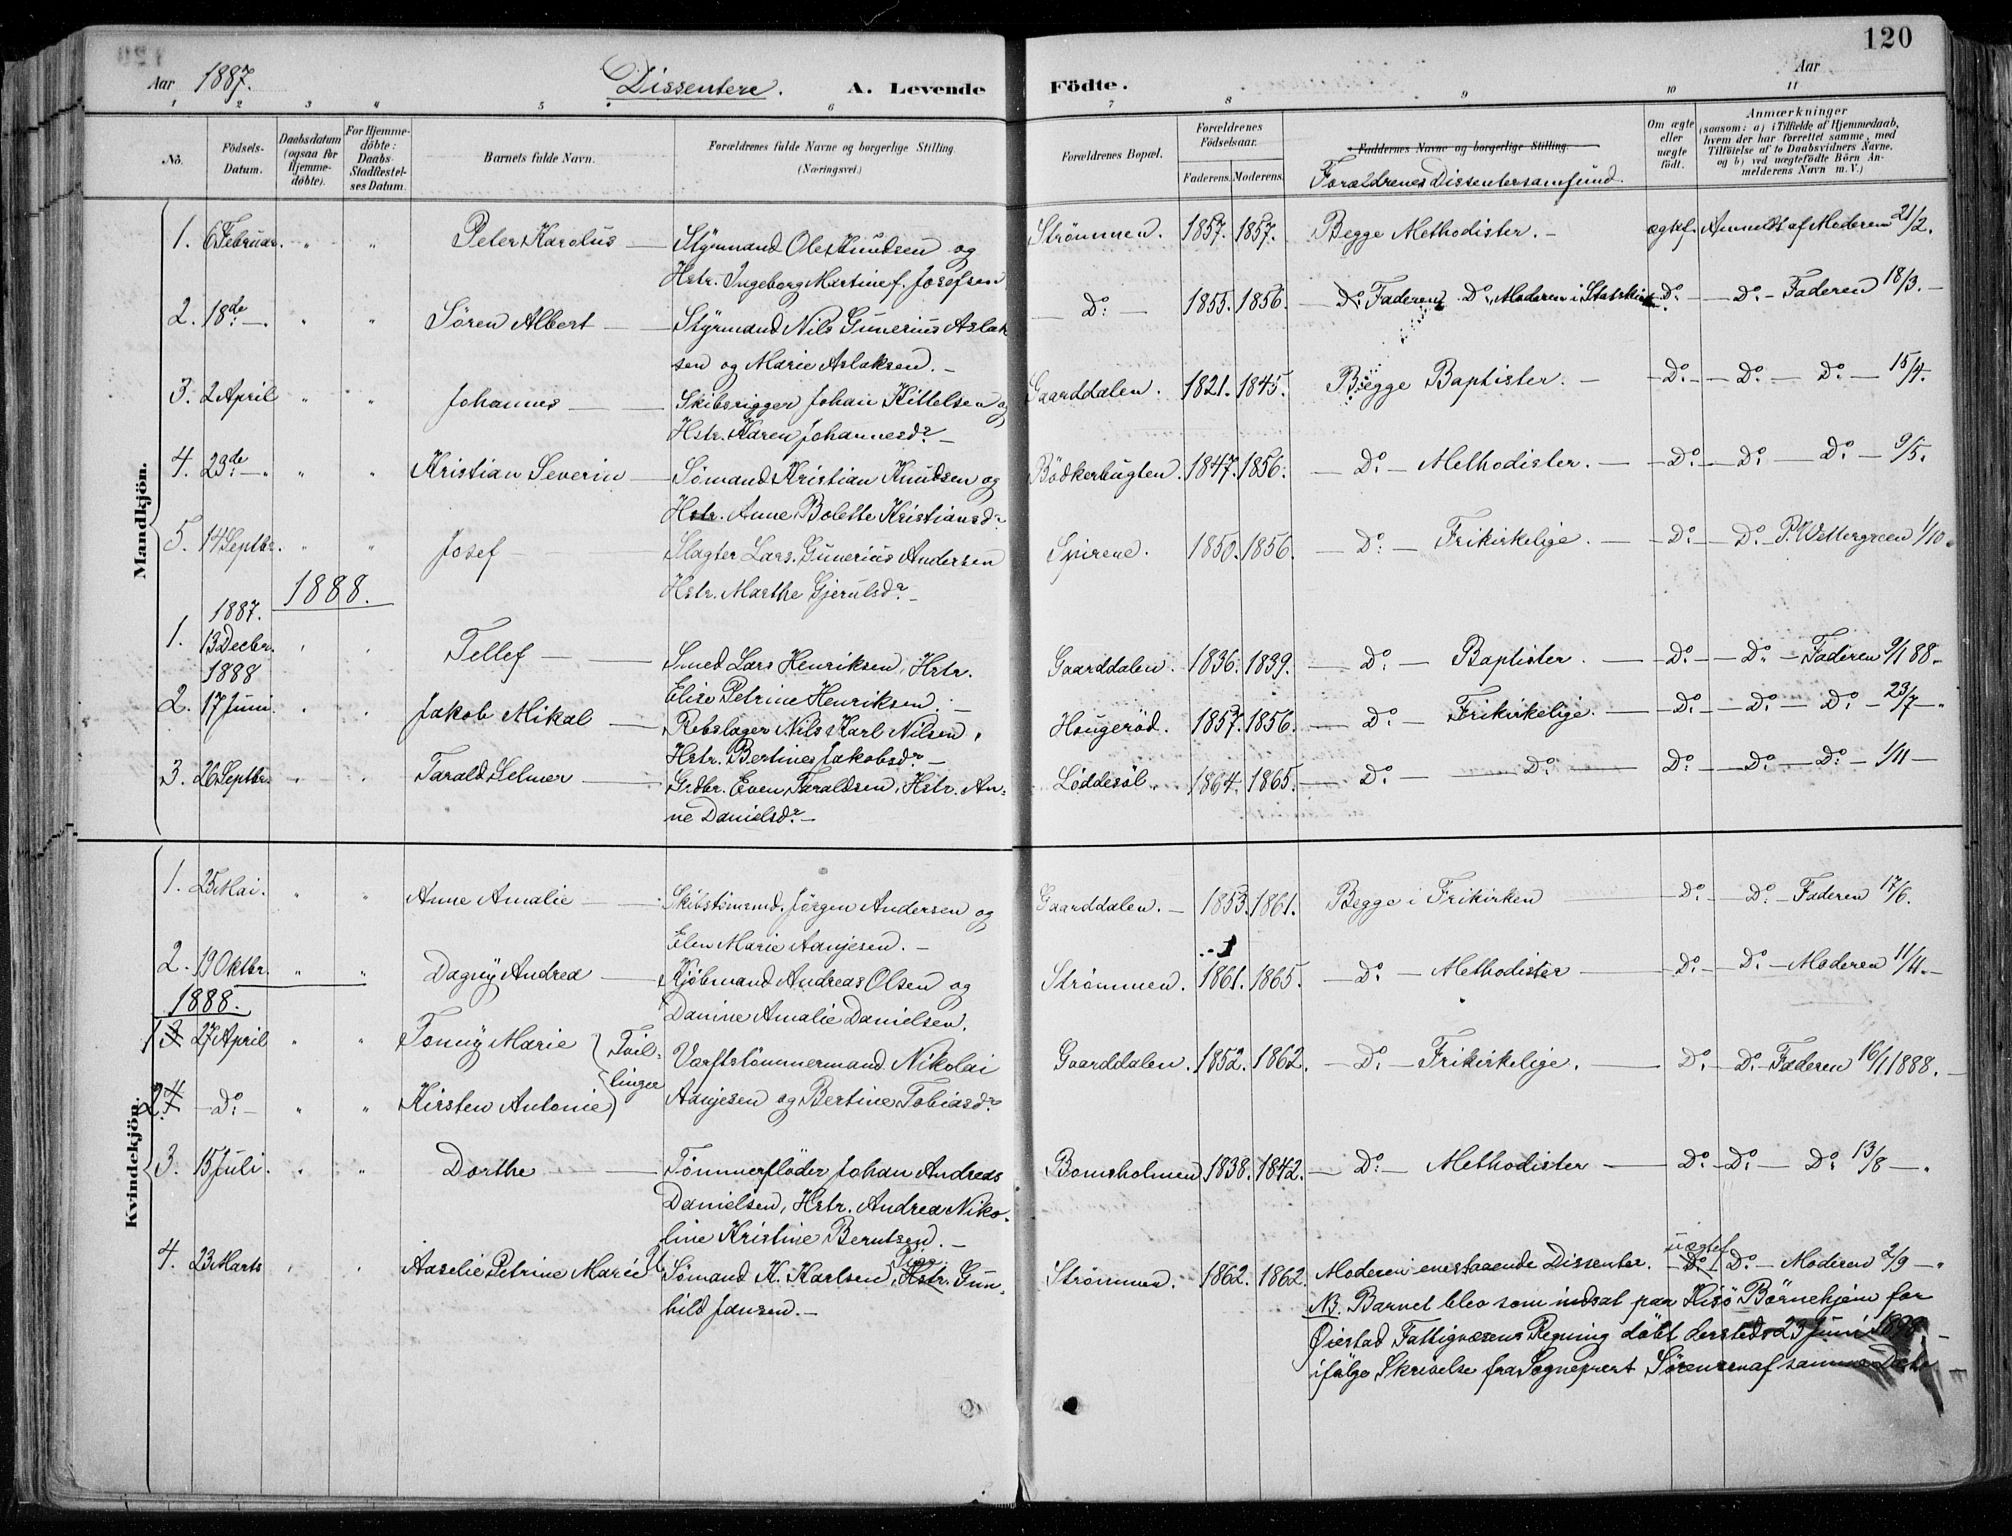 120
Aar 1887. Dissentere. A. Levende Födte. Aar
1 2 3 " 5 6 7 8 9 10 11
No. Födsels-Datum. Daabsdatum (ogsaa för Hjemme-döbte). For Hjemme-döbte: Daabs-Stadfæstelses Datum. Barnets fulde Navn. Forældrenes fulde Navne og borgerlige Stilling. (Næringsvei.) Forældrenes Bopæl. Forældrenes Födselsaar. Faderens. Moderens. Faddernes Navne og borgerlige Stilling. Forældrenes Dissentersamfund. Om ægte eller uægte födt. Anmærkninger (saasom: a) i Tilfælde af Hjemmedaab, hvem der har forrettet samme, med Tilföielse af to Daabsvidners Navne, og b) ved uægtefödte Börn Anmelderens Navn m. V.)
Mandkjön.
1. 6 Februar. " " Peter Karolus — Styrmand Ole Knudsen og Strömmen. 1857. 1857. Begge Methodister. — ægtef. Anmeldt af Moderen 21/2.
Hstr. Ingeborg Martine f. Josefsen
2. 18de — " " Sören Albert — Styrmand Nils Gunerius Aslak — Do — 1855. 1856. Do. Faderen Do. Moderen i Statskirk — Do. — Do. — Faderen 18/3. —
sen og Marie Aslaksen. —
3. 2 April " " Johannes — Skibsrigger Johan Kittelsen og Gaarddalen. 1821. 1845. Begge Baptister. — — Do. — Do. — Do. — 15/4.
Hstr. Karen Johannesdr. —
4. 23de — " " Kristian Severin — Sömand Kristian Knudsen og Bödkerbugten. 1847. 1856. — Do. — Methodister. — — Do. — Do. — Do. — 9/5.
Hstr. Anne Bolette Kristiansdr.
5. 14 Septbr. " " Josef — Slagter Lars Gunerius Andersen Spirene. 1850. 1856. — Do. — Frikirkelige. — — Do. — Do. — P. Wettergreen 1/10.
1888. Hstr. Marthe Gjerulsdr. —
1887.
1. 13 Decbr. " " Tellef — Smed Lars Henriksen, Hstr. Gaarddalen. 1836. 1839. — Do. — Baptister. — — Do. — Do. — Faderen 9/1 88.
1888 Elise Petrine Henriksen. —
2. 17 Juni. " " Jakob Mikal — Rebslager Nils Karl Nilsen, Hougeröd. 1857. 1856. — Do. — Frikirkelige. — — Do. — Do. — Do. — 23/7 —
Hstr. Bertine Jakobsdr. —
3. 26 Septbr. " " Tarald Selmer — Grdbr. Even Taraldsen, Hstr. An- Löddesöl. 1864. 1865. — Do. — — Do. — Do. — Do. — Do. — 1/11 —
ne Danielsdr. —
Kvindekjön.
1. 25 Mai. " " Anne Amalie — Skibstömmd. Jörgen Andersen og Gaarddalen. — 1853. 1861. Begge i Frikirken — Do. — Do. — Faderen 17/6.
Elen Marie Aanjesen. —
2. 19 Oktbr. " " Dagny Andrea — Kjöbmand Andreas Olsen og Strömmen. 1861. 1865. — Do. — Methodister — — Do. — Do. — Moderen 11/11. —
1888. Danine Amalie Danielsen.
1 3 27 April " " Tonny Marie } Tvil- Værftstömmermand Nikolai Gaarddalen. 1852. 1862. — Do. — Frikirkelige. — Do. — Do. Faderen 16/1 1888. —
2 4 — Do. — " " Kirsten Antonie } linger Aanjesen og Bertine Tobiasdr.
3. 15 Juli. " " Dorthe — Tömmerflöder Johan Andreas Bomsholmen 1838. 1842. — Do. — Methodister — Do. — Do. — Do. 13/8 — "
Danielsen, Hstr. Andrea Niko-
line Kristine Berntsen. —
4. 23 Marts " " Aaselie Petrine Marie U. Sömand K. Karlsen, Hstr. Pige Gun- Strömmen. 1862. 1862. Moderen enestaaende Dissenter. Do. uægtef. Do. — Moderen 2/9 — "
hild Jansen. — NB. Barnet blev som indsat paa Hisö Börnehjem for
Öiestad Fattigvæsens Regning döbt dersteds 29 Juni 1898 —
ifölge Skrivelse fra Sogneprest Sörensen af samme Dato